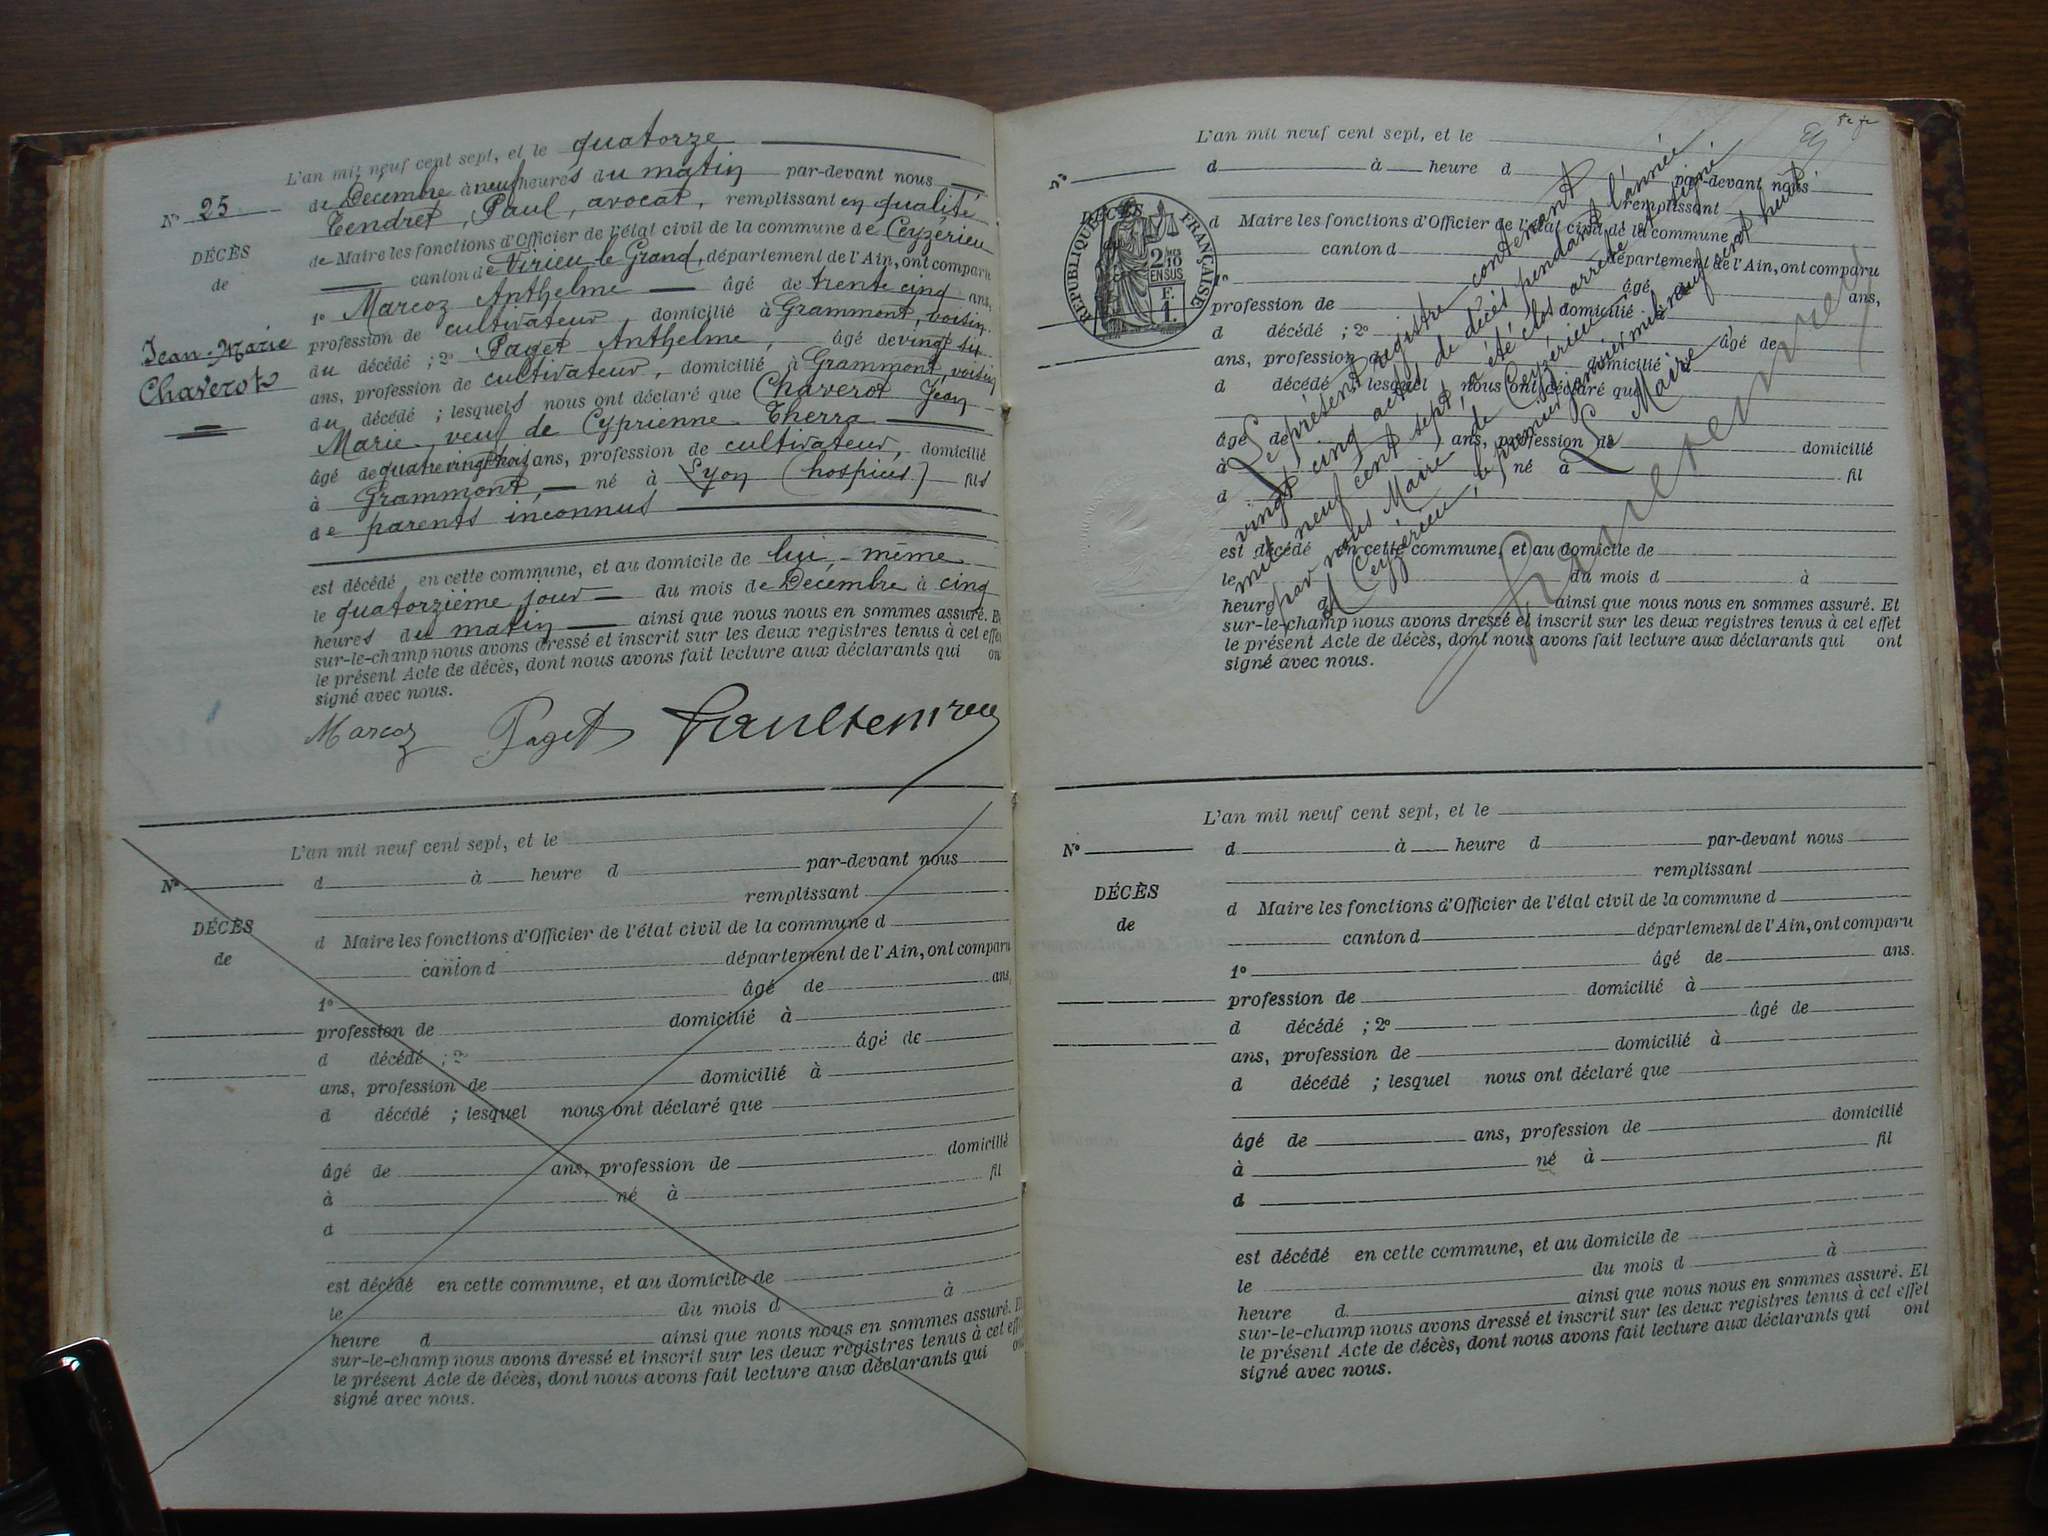 L'an mil neuf cent sept, et le quatorze
N° 25
de Décembre à neuf heures du matin par-devant nous
Tendret, Paul, avocat, remplissant en qualité
DÉCÈS
de Maire les fonctions d'Officier de l'état civil de la commune de Ceyzerieu
de
canton de Virieu le Grand, département de l'Ain, ont comparu
1° Marcoz Anthelme âgé de trente cinq ans,
Jean-Marie
profession de cultivateur, domicilié à Grammont, voisin
Chaverot
du décédé ; 2° Paget Anthelme, âgé de vingt six
ans, profession de cultivateur, domicilié à Grammont, voisin
du décédé ; lesquels nous ont déclaré que Chaverot Jean
Marie, veuf de Cyprienne Therra
âgé de quatre vingt trois ans, profession de cultivateur, domicilié
à Grammont, né à Lyon (hospices) fils
de parents inconnus
est décédé, en cette commune, et au domicile de lui, même
le quatorzième jour du mois de Décembre à cinq
heures du matin ainsi que nous nous en sommes assuré. Et
sur-le-champ nous avons dressé et inscrit sur les deux registres tenus à cet effet
le présent Acte de décès, dont nous avons fait lecture aux déclarants qui ont
signé avec nous.
Marcoz Paget Paul Tendret
L'an mil neuf cent sept, et le
N°
d à heure d par-devant nous
remplissant
DÉCÈS
d Maire les fonctions d'Officier de l'état civil de la commune d
de
canton d département de l'Ain, ont comparu
1° âgé de ans,
profession de domicilié à
d décédé ; 2° âgé de
ans, profession de domicilié à
d décédé ; lesquel nous ont déclaré que
âgé de ans, profession de domicilié
à né à fil
d
est décédé en cette commune, et au domicile de
le du mois d à
heure d ainsi que nous nous en sommes assuré. Et
sur-le-champ nous avons dressé et inscrit sur les deux registres tenus à cet effet
le présent Acte de décès, dont nous avons fait lecture aux déclarants qui ont
signé avec nous.
L'an mil neuf cent sept, et le
d à heure d par-devant nous
remplissant
DÉCÈS
RÉPUBLIQUE FRANÇAISE
2 10MES
EN SUS
F.
1.
d Maire les fonctions d'Officier de l'état civil de la commune d
canton d département de l'Ain, ont comparu
1° âgé ans,
profession de domicilié
d décédé ; 2° âgé de
ans, profession de domicilié
d décédé ; lesquel nous ont déclaré que
âgé de ans, profession de domicilié
à né à fil
d
est décédé en cette commune, et au domicile de
le du mois d à
heure d ainsi que nous nous en sommes assuré. Et
sur-le-champ nous avons dressé et inscrit sur les deux registres tenus à cet effet
le présent Acte de décès, dont nous avons fait lecture aux déclarants qui ont
signé avec nous.
Le présent registre contenant
vingt cinq actes de décès pendant l'année
mil neuf cent sept, a été clos arrêté et signé
par nous Maire de Ceyzérieu,
A Ceyzérieu, le premier janvier mil neuf cent huit
Le Maire
Paul Tendret
L'an mil neuf cent sept, et le
N°
d à heure d par-devant nous
remplissant
DÉCÈS
d Maire les fonctions d'Officier de l'état civil de la commune d
de
canton d département de l'Ain, ont comparu
1° âgé de ans.
profession de domicilié à
d décédé ; 2° âgé de
ans, profession de domicilié à
d décédé ; lesquel nous ont déclaré que
âgé de ans, profession de domicilié
à né à fil
d
est décédé en cette commune, et au domicile de
le du mois d à
heure d ainsi que nous nous en sommes assuré. Et
sur-le-champ nous avons dressé et inscrit sur les deux registres tenus à cet effet
le présent Acte de décès, dont nous avons fait lecture aux déclarants qui ont
signé avec nous.